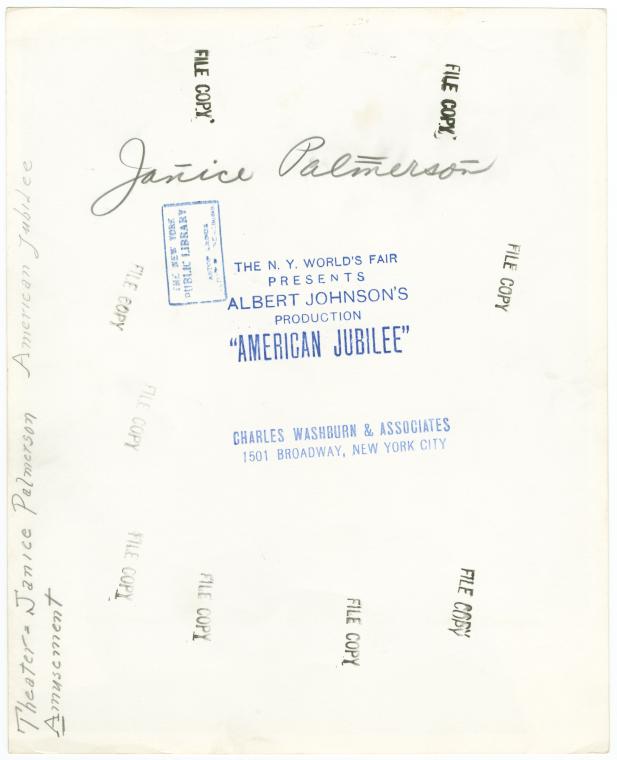 FILE COPY
FILE COPY
Janice Palmerson
THE NEW YORK
PUBLIC LIBRARY
THE N. Y. WORLD'S FAIR
PRESENTS
ALBERT JOHNSON'S
PRODUCTION
"AMERICAN JUBILEE"
FILE COPY
FILE COPY
FILE COPY
CHARLES WASHBURN & ASSOCIATES
1501 BROADWAY, NEW YORK CITY
FILE COPY
FILE COPY
FILE COPY
FILE COPY
Theater = Janice Palmerson American Jubilee
Amusement